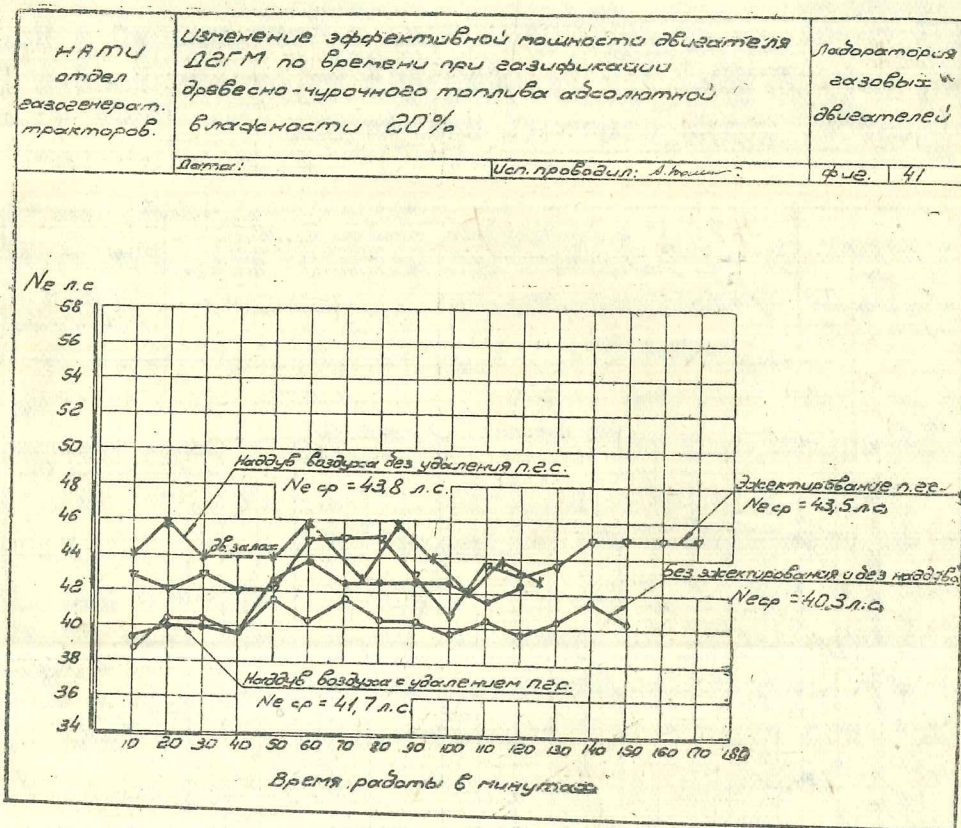 НАТИ
отдел
газогенерат.
тракторов.
Изменение эффективной мощности двигателя
Д2ГМ по времени при газификации
древесно-чурочного топлива абсолютной
влажности 20%
Лаборатория
газовых
двигателей
Дата:
Исп. проводил:
Фиг. 41
Ne л.с
58
56
54
52
50
48
46
44
42
40
38
36
34
Наддув воздуха без удаления п.г.с.
Ne ср = 43,8 л.с.
Эжектирование п.г.с.
Ne ср = 43,5 л.с.
дв. заглох
Без эжектирования и без наддува
Ne ср = 40,3 л.с.
Наддув воздуха с удалением п.г.с.
Ne ср = 41,7 л.с.
10 20 30 40 50 60 70 80 90 100 110 120 130 140 150 160 170 180
Время работы в минутах